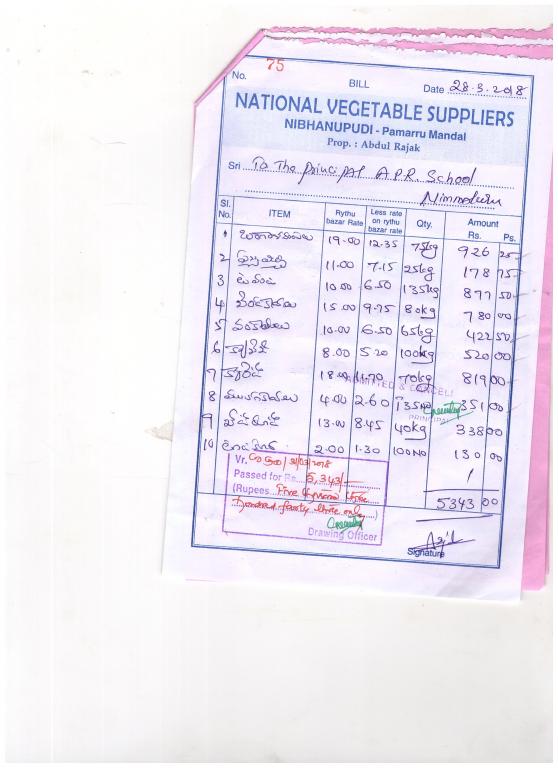 No. 75
BILL
Date 28-3-2018
NATIONAL VEGETABLE SUPPLIERS
NIBHANUPUDI - Pamarru Mandal
Prop. : Abdul Rajak
Sri To The principal A.P.R. School
Nimmakuru
Sl. No. ITEM Rythu bazar Rate Less rate on rythu bazar rate Qty. Amount Rs. Ps.
1 19-00 12.35 75kg 926 25
2 11.00 7.15 25kg 178 75
3 10.00 6.50 135kg 877 50
4 15.00 9.75 80kg 780 00
5 వంకాయలు 10.00 6.50 65kg 422 50
6 8.00 5.20 100kg 520 00
7 18.00 11.70 70kg 819 00
8 ములగకాయలు 4.00 2.60 135NO 351 00
9 13.00 8.45 40kg 338 00
10 2.00 1.30 100NO 130 00
ADMITTED &
PRINCIPAL
Vr. 31/03/2018
Passed for Rs. 5,343/-
(Rupees Five thousand three
hundred fourty three only)
Drawing Officer
5343 00
Signature